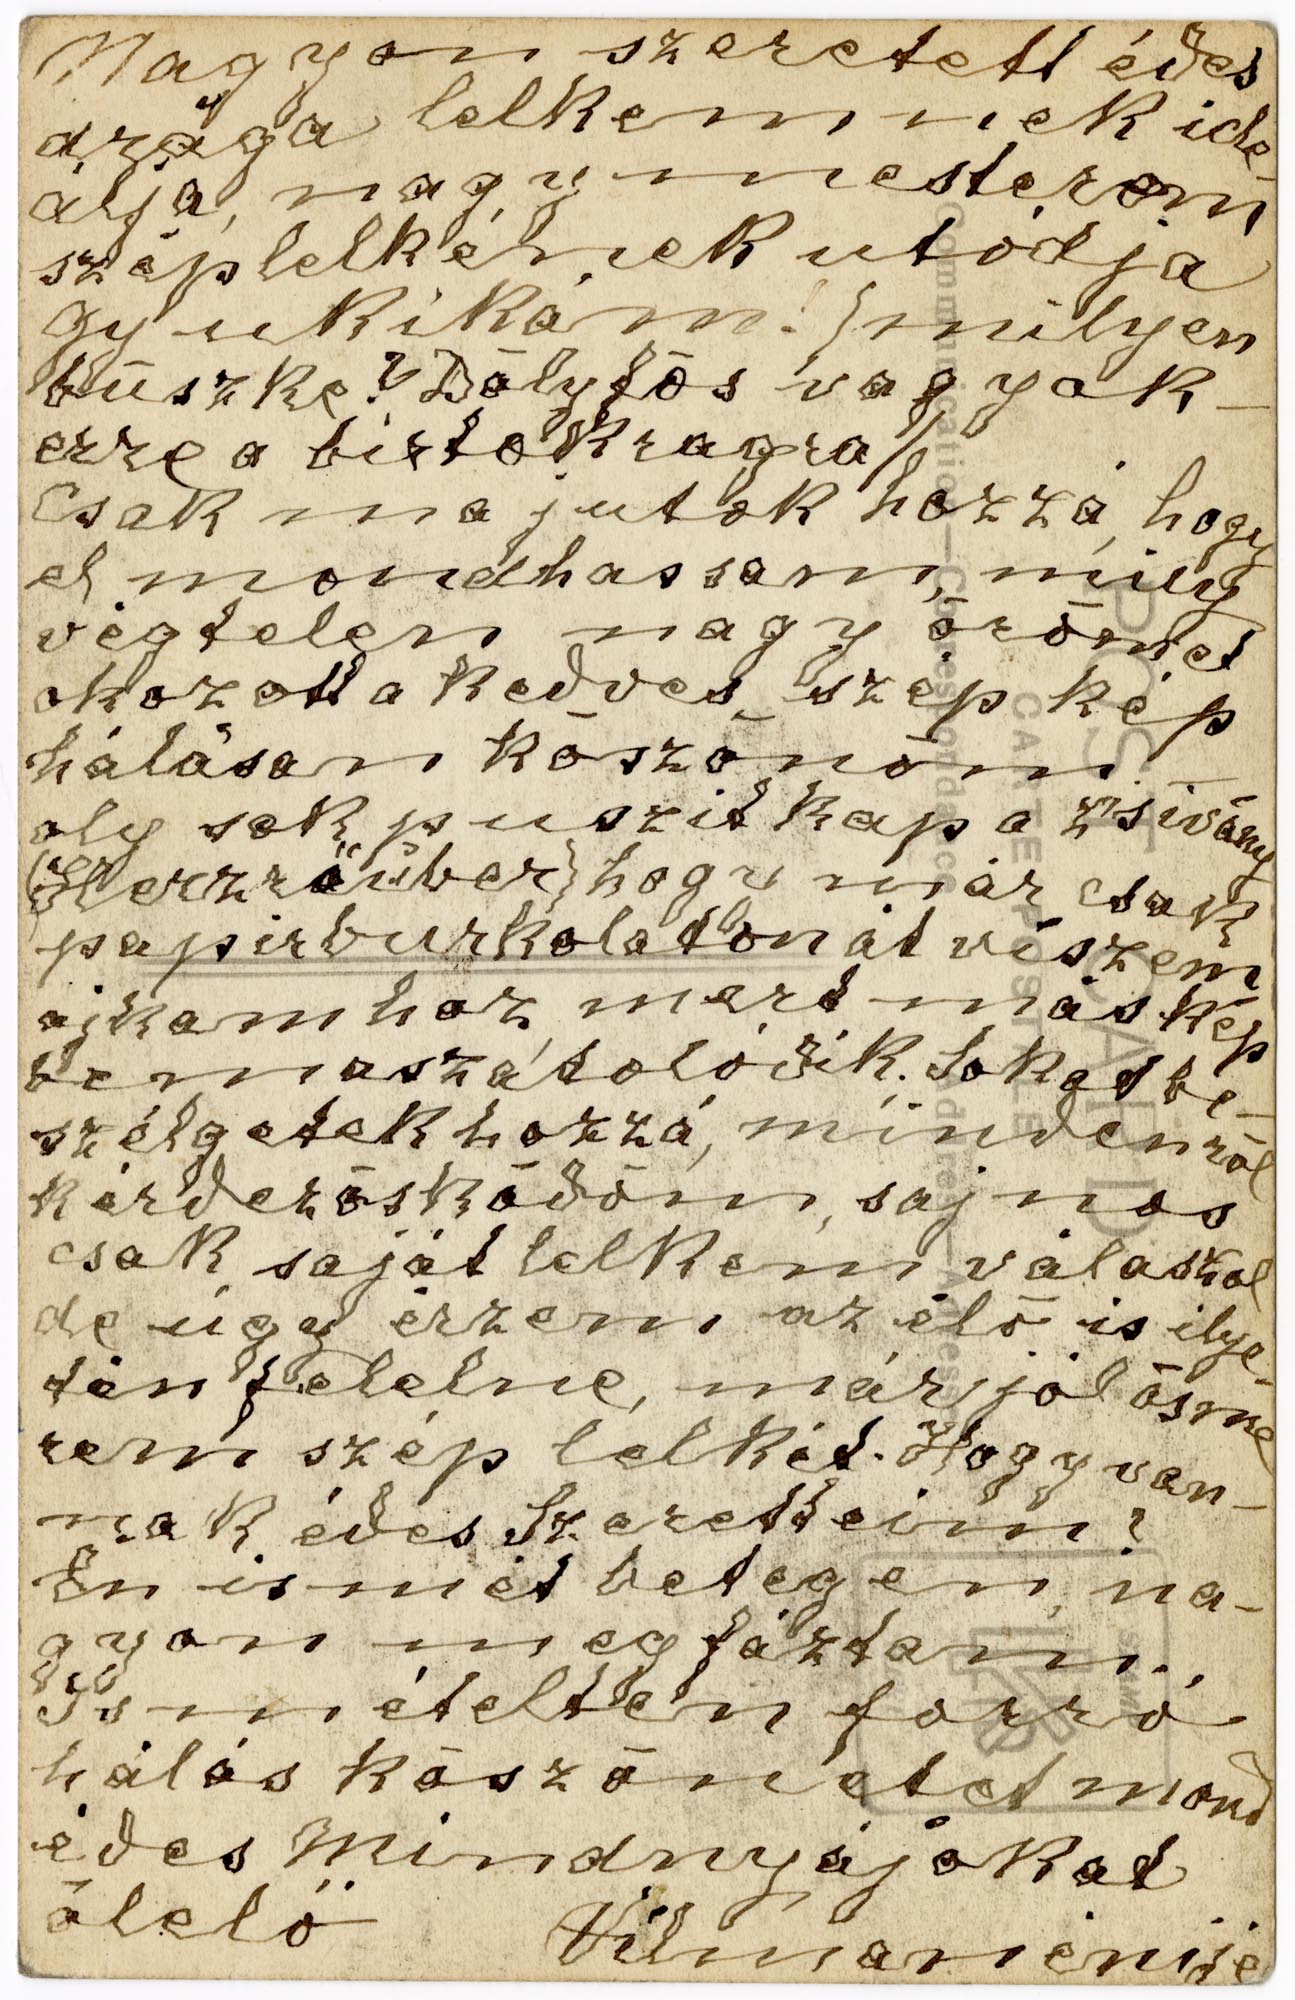 Nagyon szeretett édes
drága lelkemnek ide
álja, nagymesterem
szép lelkének utódja
Gyukikám! milyen
büszke? Dölyfös vagyok
erre a birtokragra/
Csak ma jutok hozzá, hogy
el mondhassam, mily
végtelen nagy örömet
okozott a kedves, szép kép
hálásan köszönöm. —
oly sok puszit kap a zsivány
(Herzräuber) hogy már csak
papirburkolaton át viszem
ajkamhoz mert máskép
bemaszátolódik. Sokat be-
szélgetek hozzá, mindenröl
kérdezösködöm, sajnos
csak saját lelkem válaszol
de úgy érzem az élö is ilye-
tén felelne, már jól ösme
rem szép lelkét. Hogy van-
nak édes Szeretteim?
Én ismét betegen, na-
gyon megfáztam.
Ismételten forró
hálás köszönetet mond
édes Mindnyájokat
ölelö Vilmanénije
POST CARD
CARTE POSTALE
Communication—Correspondance
Address—Adresse